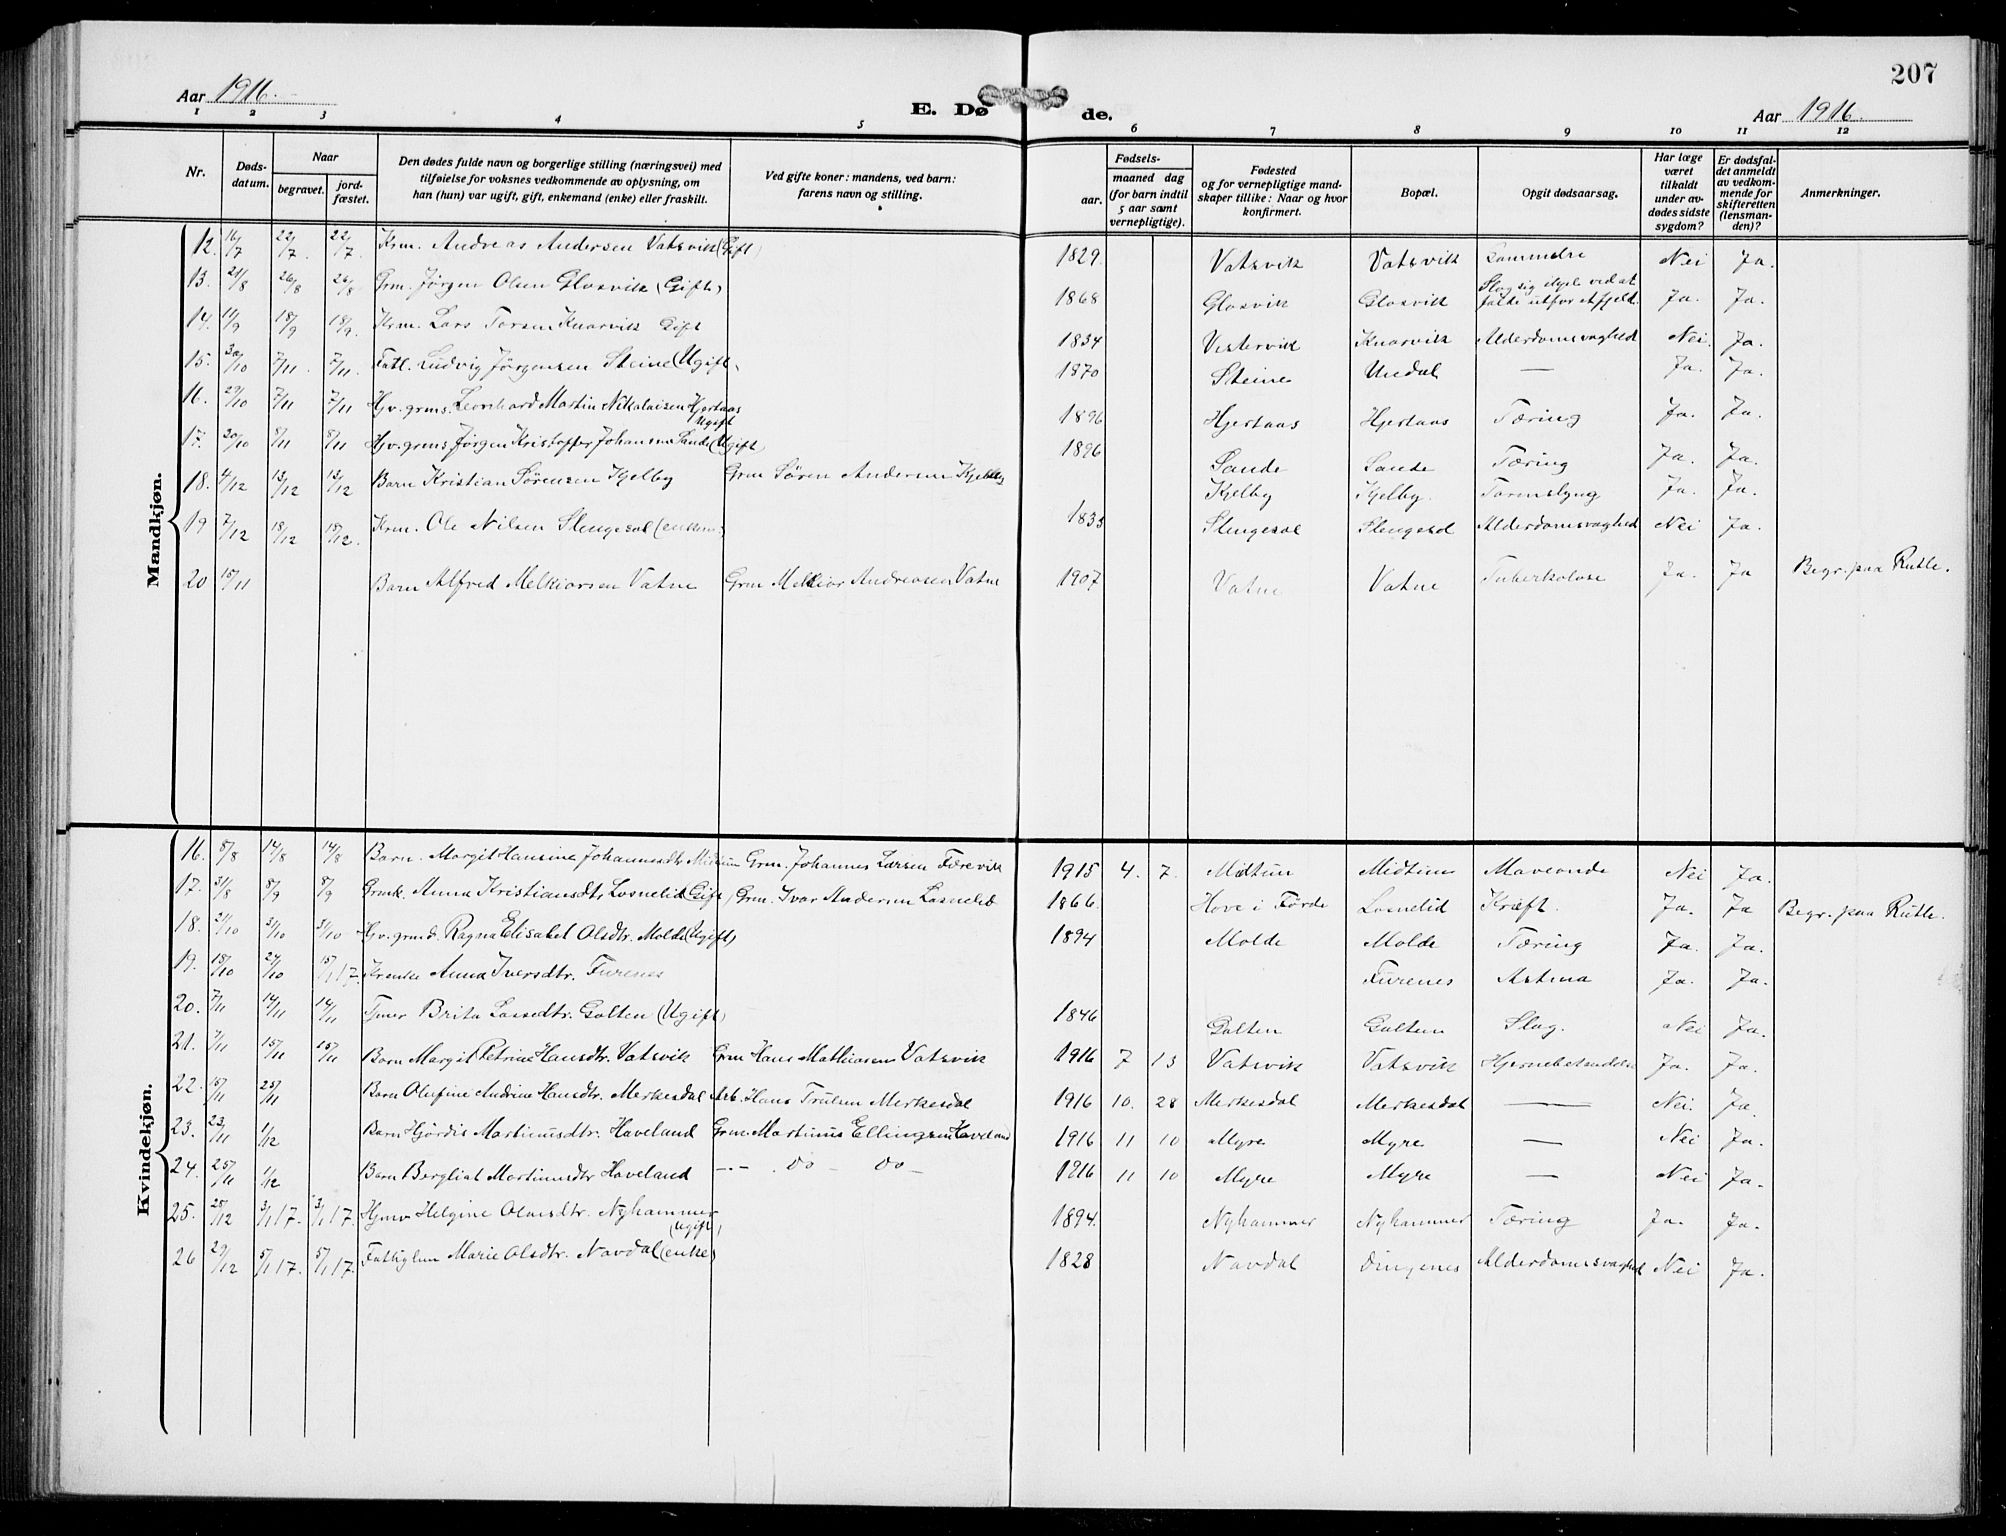 207
Aar 1916.
E. Dø de.
Aar 1916.
1 2 3 4 5 6 7 8 9 10 11 12
Nr.
Døds-datum.
Naar
begravet.
jord-fæstet.
Den dødes fulde navn og borgerlige stilling (næringsvei) med
tilføielse for voksnes vedkommende av oplysning, om
han (hun) var ugift, gift, enkemand (enke) eller fraskilt.
Ved gifte koner: mandens, ved barn:
farens navn og stilling.
Fødsels-
aar.
maaned dag
(for barn indtil
5 aar samt
vernepligtige).
Fødested
og for vernepligtige mand-
skaper tillike: Naar og hvor
konfirmert.
Bopæl.
Opgit dødsaarsag.
Har læge
været
tilkaldt
under av-
dødes sidste
sygdom?
Er dødsfal-
det anmeldt
av vedkom-
mende for
skifteretten
(lensman-
den)?
Anmerkninger.
Mandkjøn.
12. 16/7 22/7. 22/7. Krm. Andreas Andersen Vatsvik (Gift) 1829. Vatsvik Vatsvik Nei Ja.
13. 21/8 26/8 26/8 Grm. Jörgen Olsen Glosvik (Gift) 1868 Glosvik Glosvik Slog sig ihjel ved at falde utfor et fjeld. Ja. Ja.
14. 11/9 18/9 18/9. Krm. Lars Torsen Knarvik Gift 1834 Vestervik Knarvik Alderdomsvaghed Nei. Ja.
15. 30/10 7/11. 7/11. Fatl. Ludvig Jörgensen Steine (Ugift) 1870 Steine Undal — Ja. Ja.
16. 29/10 7/11 7/11 Hjv. grms. Leonhard Martin Nikolaisen Hjertaas Ugift 1896 Hjertaas Hjertaas Tæring Ja. Ja.
17. 30/10 8/11 8/11 Hjv. grms. Jørgen Kristoffer Johansen Sande (Ugift) 1896 Sande Sande Tæring Ja. Ja.
18. 4/12 13/12 13/12 Barn Kristian Sörensen Kjelby Grm Sören Andersen Kjelby Kjelby Kjelby. Ja. Ja.
19 7/12 18/12 18/12. Krm. Ole Nilsen Slengesol (enkem.) 1835 Slengesol Slengesol Alderdomsvaghed Nei Ja.
20 15/11 Barn Alfred Melkiorsen Vatne Grm Melkior Andreasen Vatne 1907 Vatne Vatne Tuberkolose Ja. Ja Begr. paa Rutle.
Kvindekjøn.
16. 8/8 14/8 14/8 Barn. Margit Hansine Johannesdtr Midtun Grm. Johannes Larsen Færevik 1915 4. 7. Midtun Midtun Maveonde Nei Ja.
17. 31/8 8/9 8/9 Grmk. Anna Kristiansdtr Losnelid (Gift) Grm. Ivar Andersen Losnelid 1866. Hove i Förde Losnelid Kræft. Ja. Ja Begr. paa Rutle.
18. 21/10 31/10 31/10 Hjv. grmd. Ragna Elisabet Olsdtr. Molde (Ugift) 1894 Molde Molde Tæring Ja. Ja.
19. 18/10 24/10 15/1 17. Krenke Anna Iversdtr. Furenes Furenes Astma Ja. Ja.
20. 7/11 14/11 14/11 Tjener Brita Lassedtr. Golten (Ugift) 1846 Golten Golten Slag. Nei Ja.
21. 7/11 15/11 15/11 Barn Margit Petrine Hansdtr. Vatsvik Grm Hans Mathiasen Vatsvik 1916 7 13 Vatsvik Vatsvik Hjernebetændelse Ja. Ja.
22. 15/11 25/11 Barn Olufine Andrine Hansdtr. Merkesdal Arb. Hans Trulsen Merkesdal 1916 10. 28 Merkesdal Merkesdal — Nei. Ja.
23. 23/11 1/12 Barn Hjördis Martinusdtr. Haveland Grm Martinus Ellingsen Haveland 1916 11 10 Myre Myre — Nei Ja.
24. 25/11 1/12 Barn Bergliot Martinusdtr Haveland — . — . do — do — 1916 11 10 Myre Myre — Nei Ja.
25. 25/12 3/1 17. 3/1 17. Hjmv Helgine Olaisdtr. Nyhammer (Ugift) 1894. Nyhammer Nyhammer Tæring Ja. Ja.
26 29/12 5/1 17. 5/1 17. Fattiglem Marie Olsdtr. Navdal (enke) 1828 Navdal Dingenes Alderdomssvaghed Nei Ja.